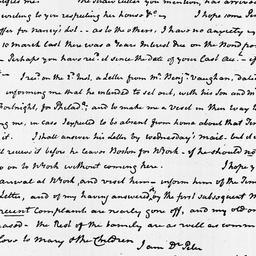 writing to you respecting her house &c — I hope some
offer for Nancy's lot — as to the others, I have no anxiety
10 March last there was a Years Interest due on the Bond
Perhaps you have rec.d since the date of your last
I rec.d on the 1st Inst. a Letter from Mr. Benj. Vaughan, dated
informing me that he intended to set out, with his Son and
Fortnight, for Philad.a, and to make me a visit in their way
ing me, in case I expected to be absent from home about that
it. I shall answer his Letter by Wednesday's mail. but
will receive it before he leaves Boston for N York — if he should
go on to N York without coming here. I hope
arrival at N York, and desired him — inform him of the
Letter, and of my having answered it by the first subsequent
recent Complaint are nearly gone off, and my old
The Rest of the Family are as well as
Love to Mary & the Children
I am Dr. Peter